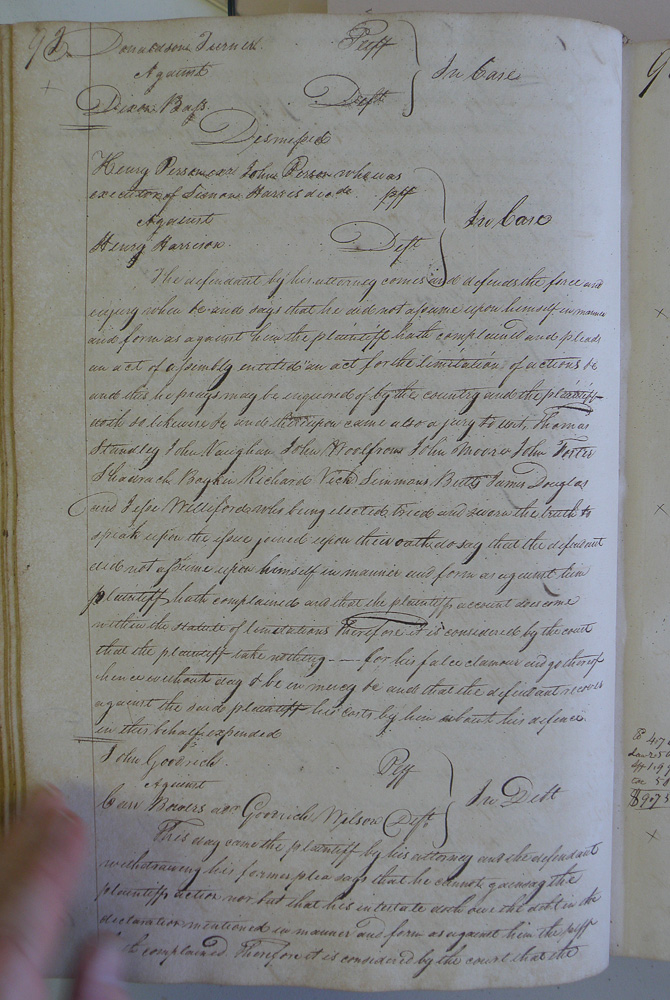 92 Donaldson Turner Plff
Against In Case
Dixon Bass Deft
Dismissed
Henry Person and John Person who was
executor of Simon Harris decd. plff
Against In Case
Henry Harrison Deft
The defendant by his attorney comes and defends the force and
injury when &c and says that he did not assume upon himself in manner
and form as against him the plaintiff hath complained and pleads
an act of assembly entitled "an act for the limitation of actions &c
and this he prays may be enquired of by the country and the plaintiff
doth so likewise &c and thereupon came also a jury to wit, Thomas
Standley John Vaughan John Woolfrom John Moore John Foster
Shadrach Boykin Richard Vick Simmons Butts James Douglas
and Jesse Williford who being elected tried and sworn the truth to
speak upon the issue joined upon their oath do say that the defendant
did not assume upon himself in manner and form as against him
plaintiff hath complained and that the plaintiffs account does come
within the statute of limitations Therefore it is considered by the court
that the plaintiff take nothing -- for his false clamour and go thereof
hence without day & be in mercy &c and that the defendant recover
against the said plaintiff his costs by him about his defence
in this behalf expended
John Goodrich Plff
Against In Debt
Carr Bowers Goodrich Wilson Deft
This day came the plaintiff by his attorney and the defendant
withdrawing his former plea says that he cannot gainsay the
plaintiffs action nor but that his intestate doth owe the debt in the
declaration mentioned in manner and form as against him the plff
hath complained. Therefore it is considered by the court that the